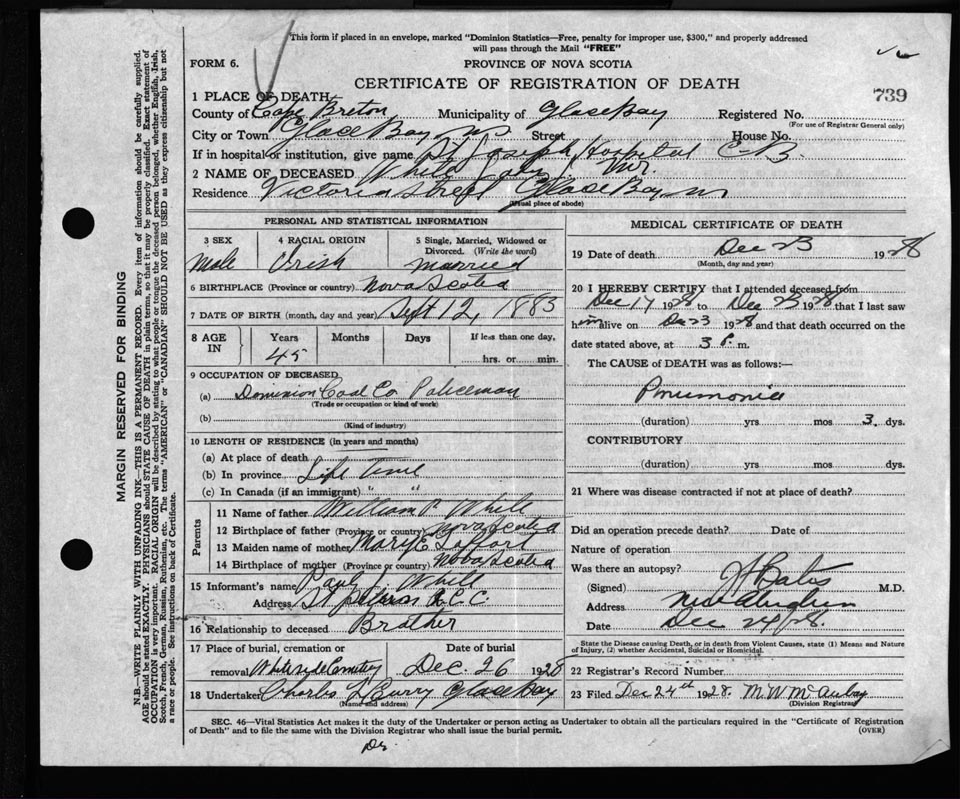 This form if placed in an envelope, marked "Dominion Statistics—Free, penalty for improper use, $300," and properly addressed
will pass through the Mail "FREE"
FORM 6.
PROVINCE OF NOVA SCOTIA
CERTIFICATE OF REGISTRATION OF DEATH
739
1 PLACE OF DEATH
County of Cape Breton Municipality of Glace Bay Registered No.
(For use of Registrar General only)
City or Town Glace Bay, N.S Street House No.
If in hospital or institution, give name St Joseph Hospital C.B.
2 NAME OF DECEASED White Mr.
Residence Victoria Street Glace Bay, ns
(Usual place of abode)
PERSONAL AND STATISTICAL INFORMATION
3 SEX 4 RACIAL ORIGIN 5 Single, Married, Widowed or
Divorced. (Write the word)
Male Irish married
6 BIRTHPLACE (Province or country) Nova Scotia
7 DATE OF BIRTH (month, day and year) Sept 12, 1883
8 AGE IN Years Months Days If less than one day,
45 hrs. or min.
9 OCCUPATION OF DECEASED
(a) Dominion Coal Co Policeman
(Trade or occupation or kind of work)
(b)
(Kind of industry)
10 LENGTH OF RESIDENCE (in years and months)
(a) At place of death
(b) In province Life Time
(c) In Canada (if an immigrant) " "
Parents
11 Name of father William P White
12 Birthplace of father (Province or country) Nova Scotia
13 Maiden name of mother Mary E
14 Birthplace of mother (Province or country) Nova Scotia
15 Informant's name Paul J. White
Address St Peters R.C.C.
16 Relationship to deceased Brother
17 Place of burial, cremation or Date of burial
removal Cemetery Dec. 26 1928
18 Undertaker Charles Curry Glace Bay
(Name and address)
MEDICAL CERTIFICATE OF DEATH
19 Date of death Dec 23 1928
(Month, day and year)
20 I HEREBY CERTIFY that I attended deceased from
Dec 17 1928 to Dec 23 1928 that I last saw
him alive on Dec 23 1928 and that death occurred on the
date stated above, at 3 P. m.
The CAUSE of DEATH was as follows:—
Pneumonia
(duration) yrs mos 3. dys.
CONTRIBUTORY
(duration) yrs. mos. dys.
21 Where was disease contracted if not at place of death?
Did an operation precede death? Date of
Nature of operation
Was there an autopsy?
(Signed) Bates M.D.
Address New Aberdeen
Date Dec 24/28.
State the Disease causing Death, or in death from Violent Causes, state (1) Means and Nature
of Injury, (2) whether Accidental, Suicidal or Homicidal.
22 Registrar's Record Number
23 Filed Dec 24th 1928. M.W McAulay
(Division Registrar)
SEC. 46—Vital Statistics Act makes it the duty of the Undertaker or person acting as Undertaker to obtain all the particulars required in the "Certificate of Registration
of Death" and to file the same with the Division Registrar who shall issue the burial permit.
(OVER)
Dr.
MARGIN RESERVED FOR BINDING
N.B.—WRITE PLAINLY WITH UNFADING INK—THIS IS A PERMANENT RECORD. Every item of information should be carefully supplied.
AGE should be stated EXACTLY. PHYSICIANS should STATE CAUSE OF DEATH in plain terms, so that it may be properly classified. Exact statement of
OCCUPATION is very important. RACIAL ORIGIN will be described by stating to what people or tongue the deceased person belonged, whether English, Irish,
Scotch, French, German, Russian, Ruthenian, etc. The terms "AMERICAN" or "CANADIAN" SHOULD NOT BE USED as they express citizenship but not
a race or people. See instructions on back of Certificate.